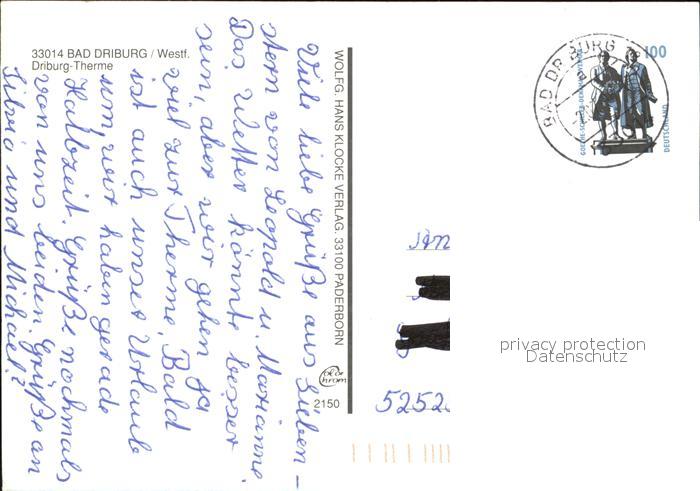 33014 BAD DRIBURG / Westf.
Driburg-Therme
Viele liebe Grüße aus Sieben-
stern von Leopold u. Marianne
Das Wetter könnte besser
sein, aber wir gehen ja
viel zur Therme. Bald
ist auch unser Urlaub
um, wir haben gerade
Halbzeit. Grüße nochmals
von uns beiden. Grüße an
Silvio und Michael?
WOLFG. HANS KLOCKE VERLAG. 33100 PADERBORN
2150
BAD DRIBURG 1
100
DEUTSCHLAND
5252
privacy protection
Datenschutz